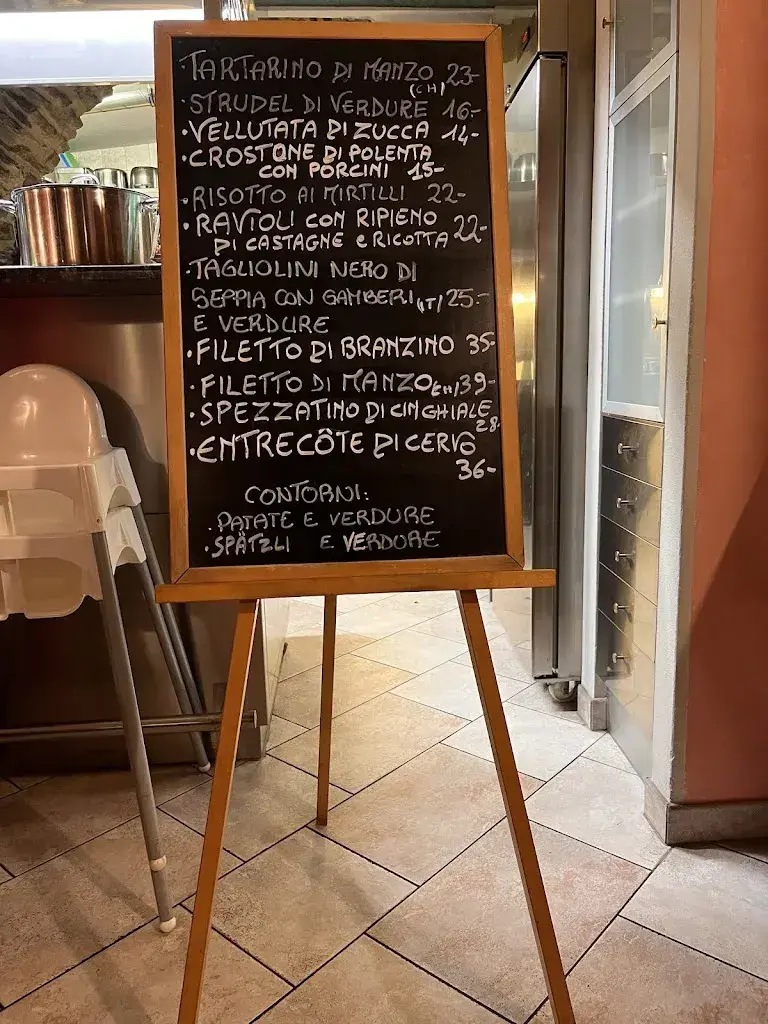 ·TARTARINO DI MANZO (CH) 23-
·STRUDEL DI VERDURE 16.-
·VELLUTATA DI ZUCCA 14-
·CROSTONE DI POLENTA
CON PORCINI 15-
·RISOTTO AI MIRTILLI 22-
·RAVIOLI CON RIPIENO
DI CASTAGNE e RICOTTA 22-
·TAGLIOLINI NERO DI
SEPPIA CON GAMBERI (IT) 25.-
E VERDURE
·FILETTO DI BRANZINO 35-
·FILETTO DI MANZO (CH) 39-
·SPEZZATINO DI CINGHIALE
28-
·ENTRECÔTE DI CERVO
36-
CONTORNI:
·PATATE E VERDURE
·SPÄTZLI E VERDURE